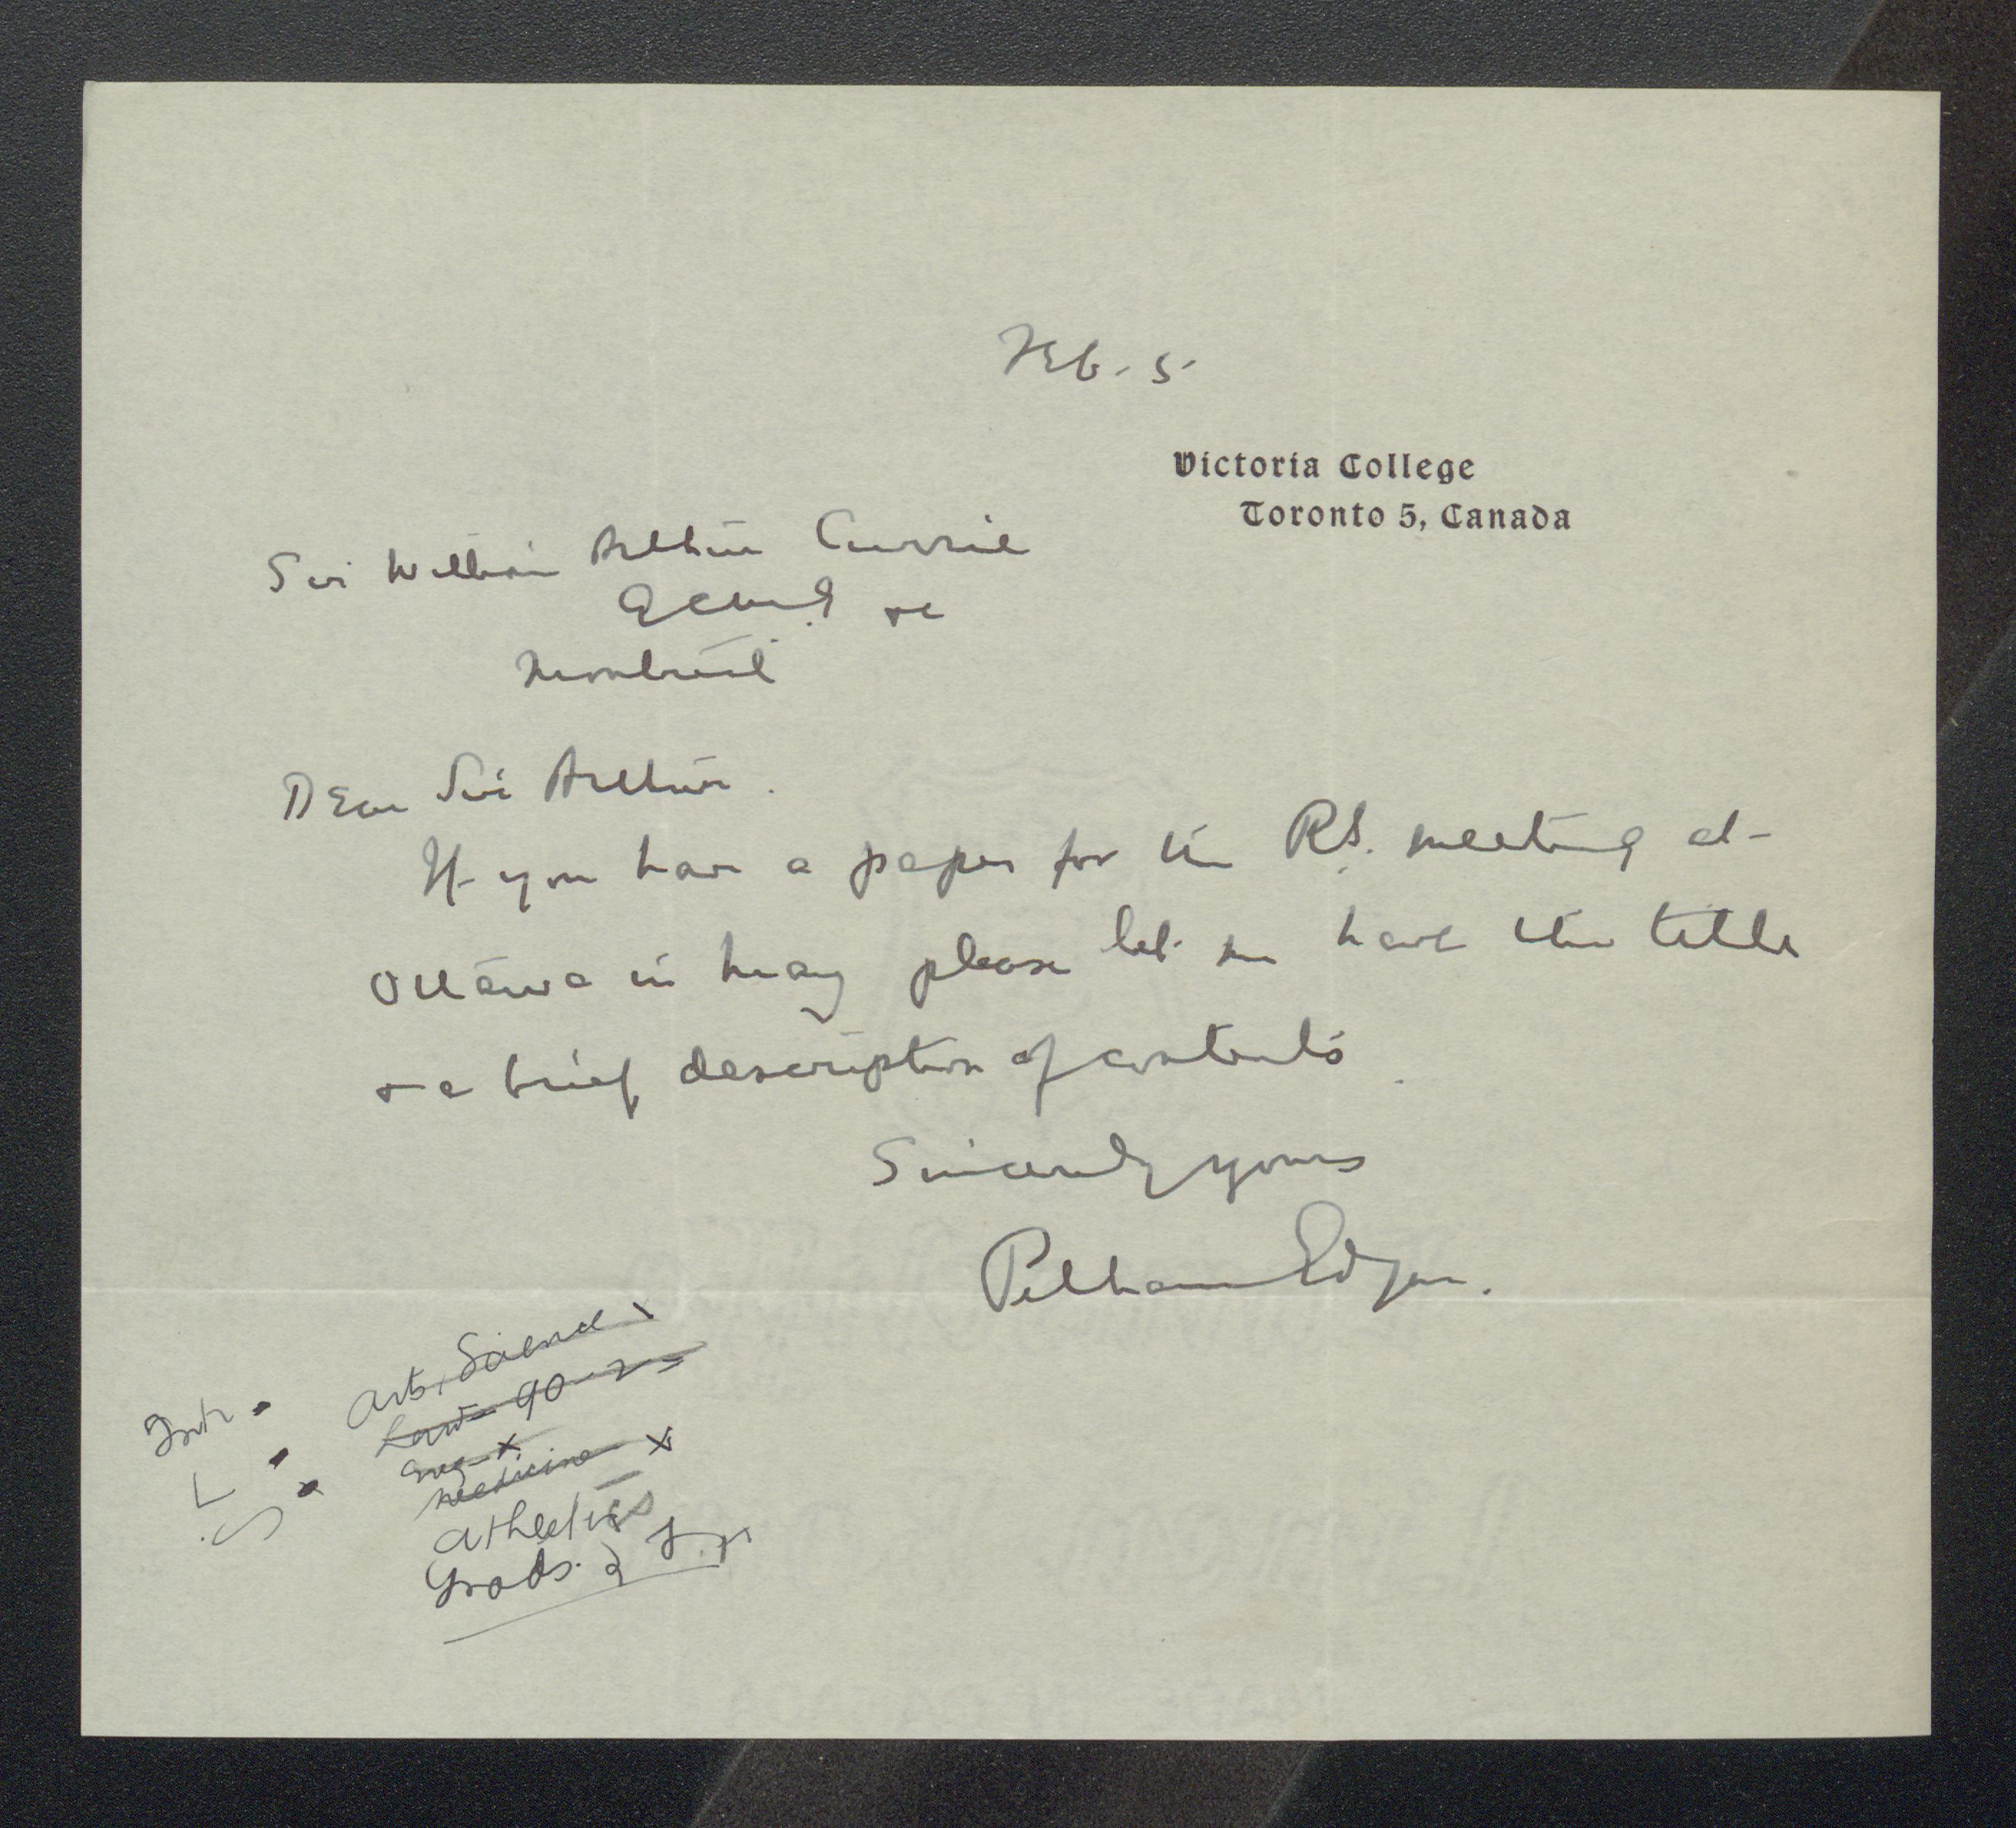 Feb. 5.
Victoria College
Toronto 5, Canada
Sir William Arthur Currie
GCMG &c
Montreal
Dear Sir Arthur.
If you have a paper for the R.S. meeting at
Ottawa in May please let me have the title
& a brief description of contents.
Sincerely yours
Pelham Edgar.
Arts, Science
Law 90
Eng x
Medicine x
Athletics
Grads.
L
S